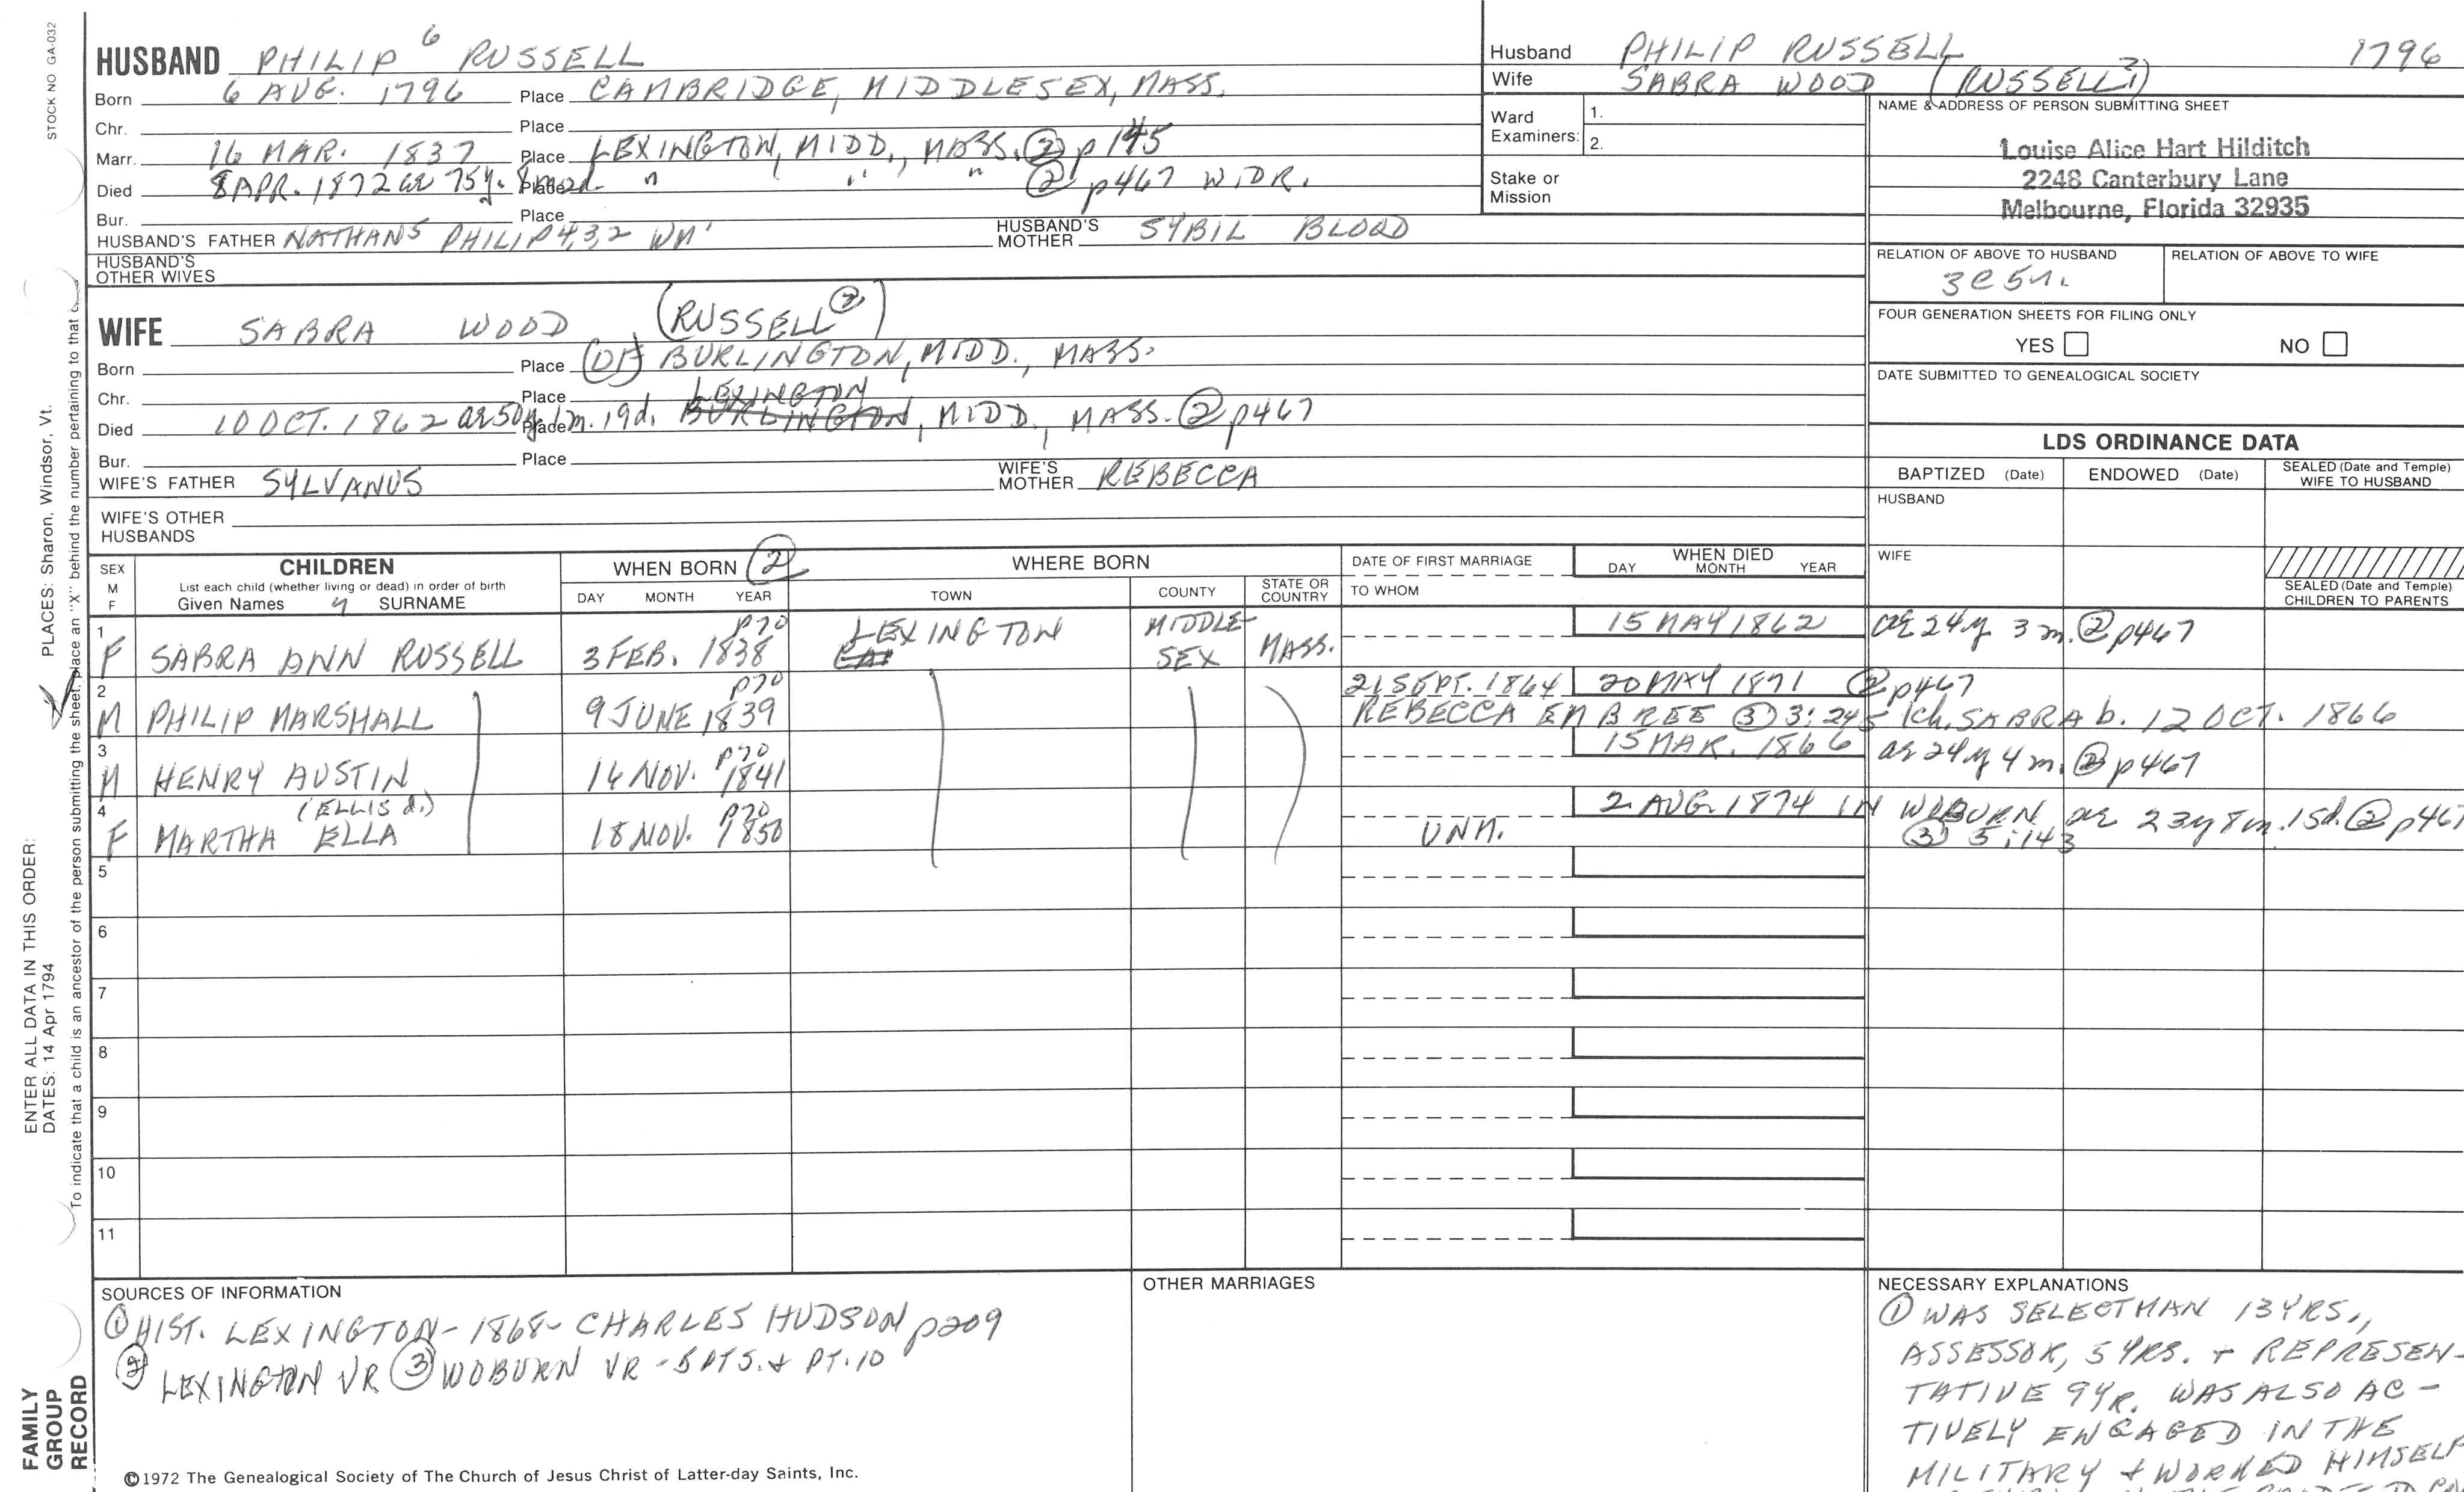 STOCK NO GA-032
HUSBAND PHILIP 6 RUSSELL
Born 6 AUG. 1796 Place CAMBRIDGE, MIDDLESEX, MASS.
Chr. Place
Marr. 16 MAR. 1837 Place LEXINGTON, MIDD., MASS. ② p 145
Died 8 APR. 1872 ae 75y. 8m 2d. Place " " " ② p467 WIDR.
Bur. Place
HUSBAND'S FATHER NATHAN5 PHILIP4,3,2 WM' HUSBAND'S MOTHER SYBIL BLOOD
HUSBAND'S OTHER WIVES
WIFE SABRA WOOD (RUSSELL ②)
Born Place (OF) BURLINGTON, MIDD., MASS.
Chr. Place LEXINGTON
Died 10 OCT. 1862 ae 50y 1m. 19d. Place BURLINGTON, MIDD., MASS. ② p467
Bur. Place
WIFE'S FATHER SYLVANUS WIFE'S MOTHER REBECCA
WIFE'S OTHER HUSBANDS
Husband PHILIP RUSSELL 1796
Wife SABRA WOOD (RUSSELL ?)
Ward Examiners: 1.
2.
Stake or Mission
NAME & ADDRESS OF PERSON SUBMITTING SHEET
Louise Alice Hart Hilditch
2248 Canterbury Lane
Melbourne, Florida 32935
RELATION OF ABOVE TO HUSBAND RELATION OF ABOVE TO WIFE
3c5r.
FOUR GENERATION SHEETS FOR FILING ONLY
YES NO
DATE SUBMITTED TO GENEALOGICAL SOCIETY
LDS ORDINANCE DATA
BAPTIZED (Date) ENDOWED (Date) SEALED (Date and Temple) WIFE TO HUSBAND
HUSBAND
WIFE
SEALED (Date and Temple) CHILDREN TO PARENTS
SEX M F CHILDREN List each child (whether living or dead) in order of birth Given Names 7 SURNAME
WHEN BORN ② DAY MONTH YEAR
WHERE BORN TOWN COUNTY STATE OR COUNTRY
DATE OF FIRST MARRIAGE TO WHOM
WHEN DIED DAY MONTH YEAR
1 F SABRA ANN RUSSELL 3 FEB. 1838 p70 LEXINGTON MIDDLE-SEX MASS. 15 MAY 1862 ae 24y 3 m. ② p467
2 M PHILIP MARSHALL 9 JUNE 1839 p70 21 SEPT. 1864 20 MAY 1871 ② p467
REBECCA EMBREE ③ 3:245 1ch. SABRA b. 12 OCT. 1866
3 M HENRY AUSTIN 14 NOV. 1841 p70 15 MAR. 1866 ae 24y 4 m. ② p467
4 F MARTHA ELLA (ELLIS d.) 18 NOV. 1850 p70 UNM. 2 AUG. 1874 IN WOBURN ae 23y 8m. 15d. ② p467
③ 5:143
5
6
7
8
9
10
11
SOURCES OF INFORMATION
① HIST. LEXINGTON - 1868 - CHARLES HUDSON p209
② LEXINGTON VR ③ WOBURN VR - 5 PTS. & PT. 10
OTHER MARRIAGES
NECESSARY EXPLANATIONS
① WAS SELECTMAN 13 YRS.,
ASSESSOR, 5 YRS. + REPRESEN-
TATIVE 9 YR. WAS ALSO AC-
TIVELY ENGAGED IN THE
MILITARY + WORKED HIMSELF
©1972 The Genealogical Society of The Church of Jesus Christ of Latter-day Saints, Inc.
FAMILY GROUP RECORD
ENTER ALL DATA IN THIS ORDER:
DATES: 14 Apr 1794
PLACES: Sharon, Windsor, Vt.
To indicate that a child is an ancestor of the person submitting the sheet, place an "X" behind the number pertaining to that